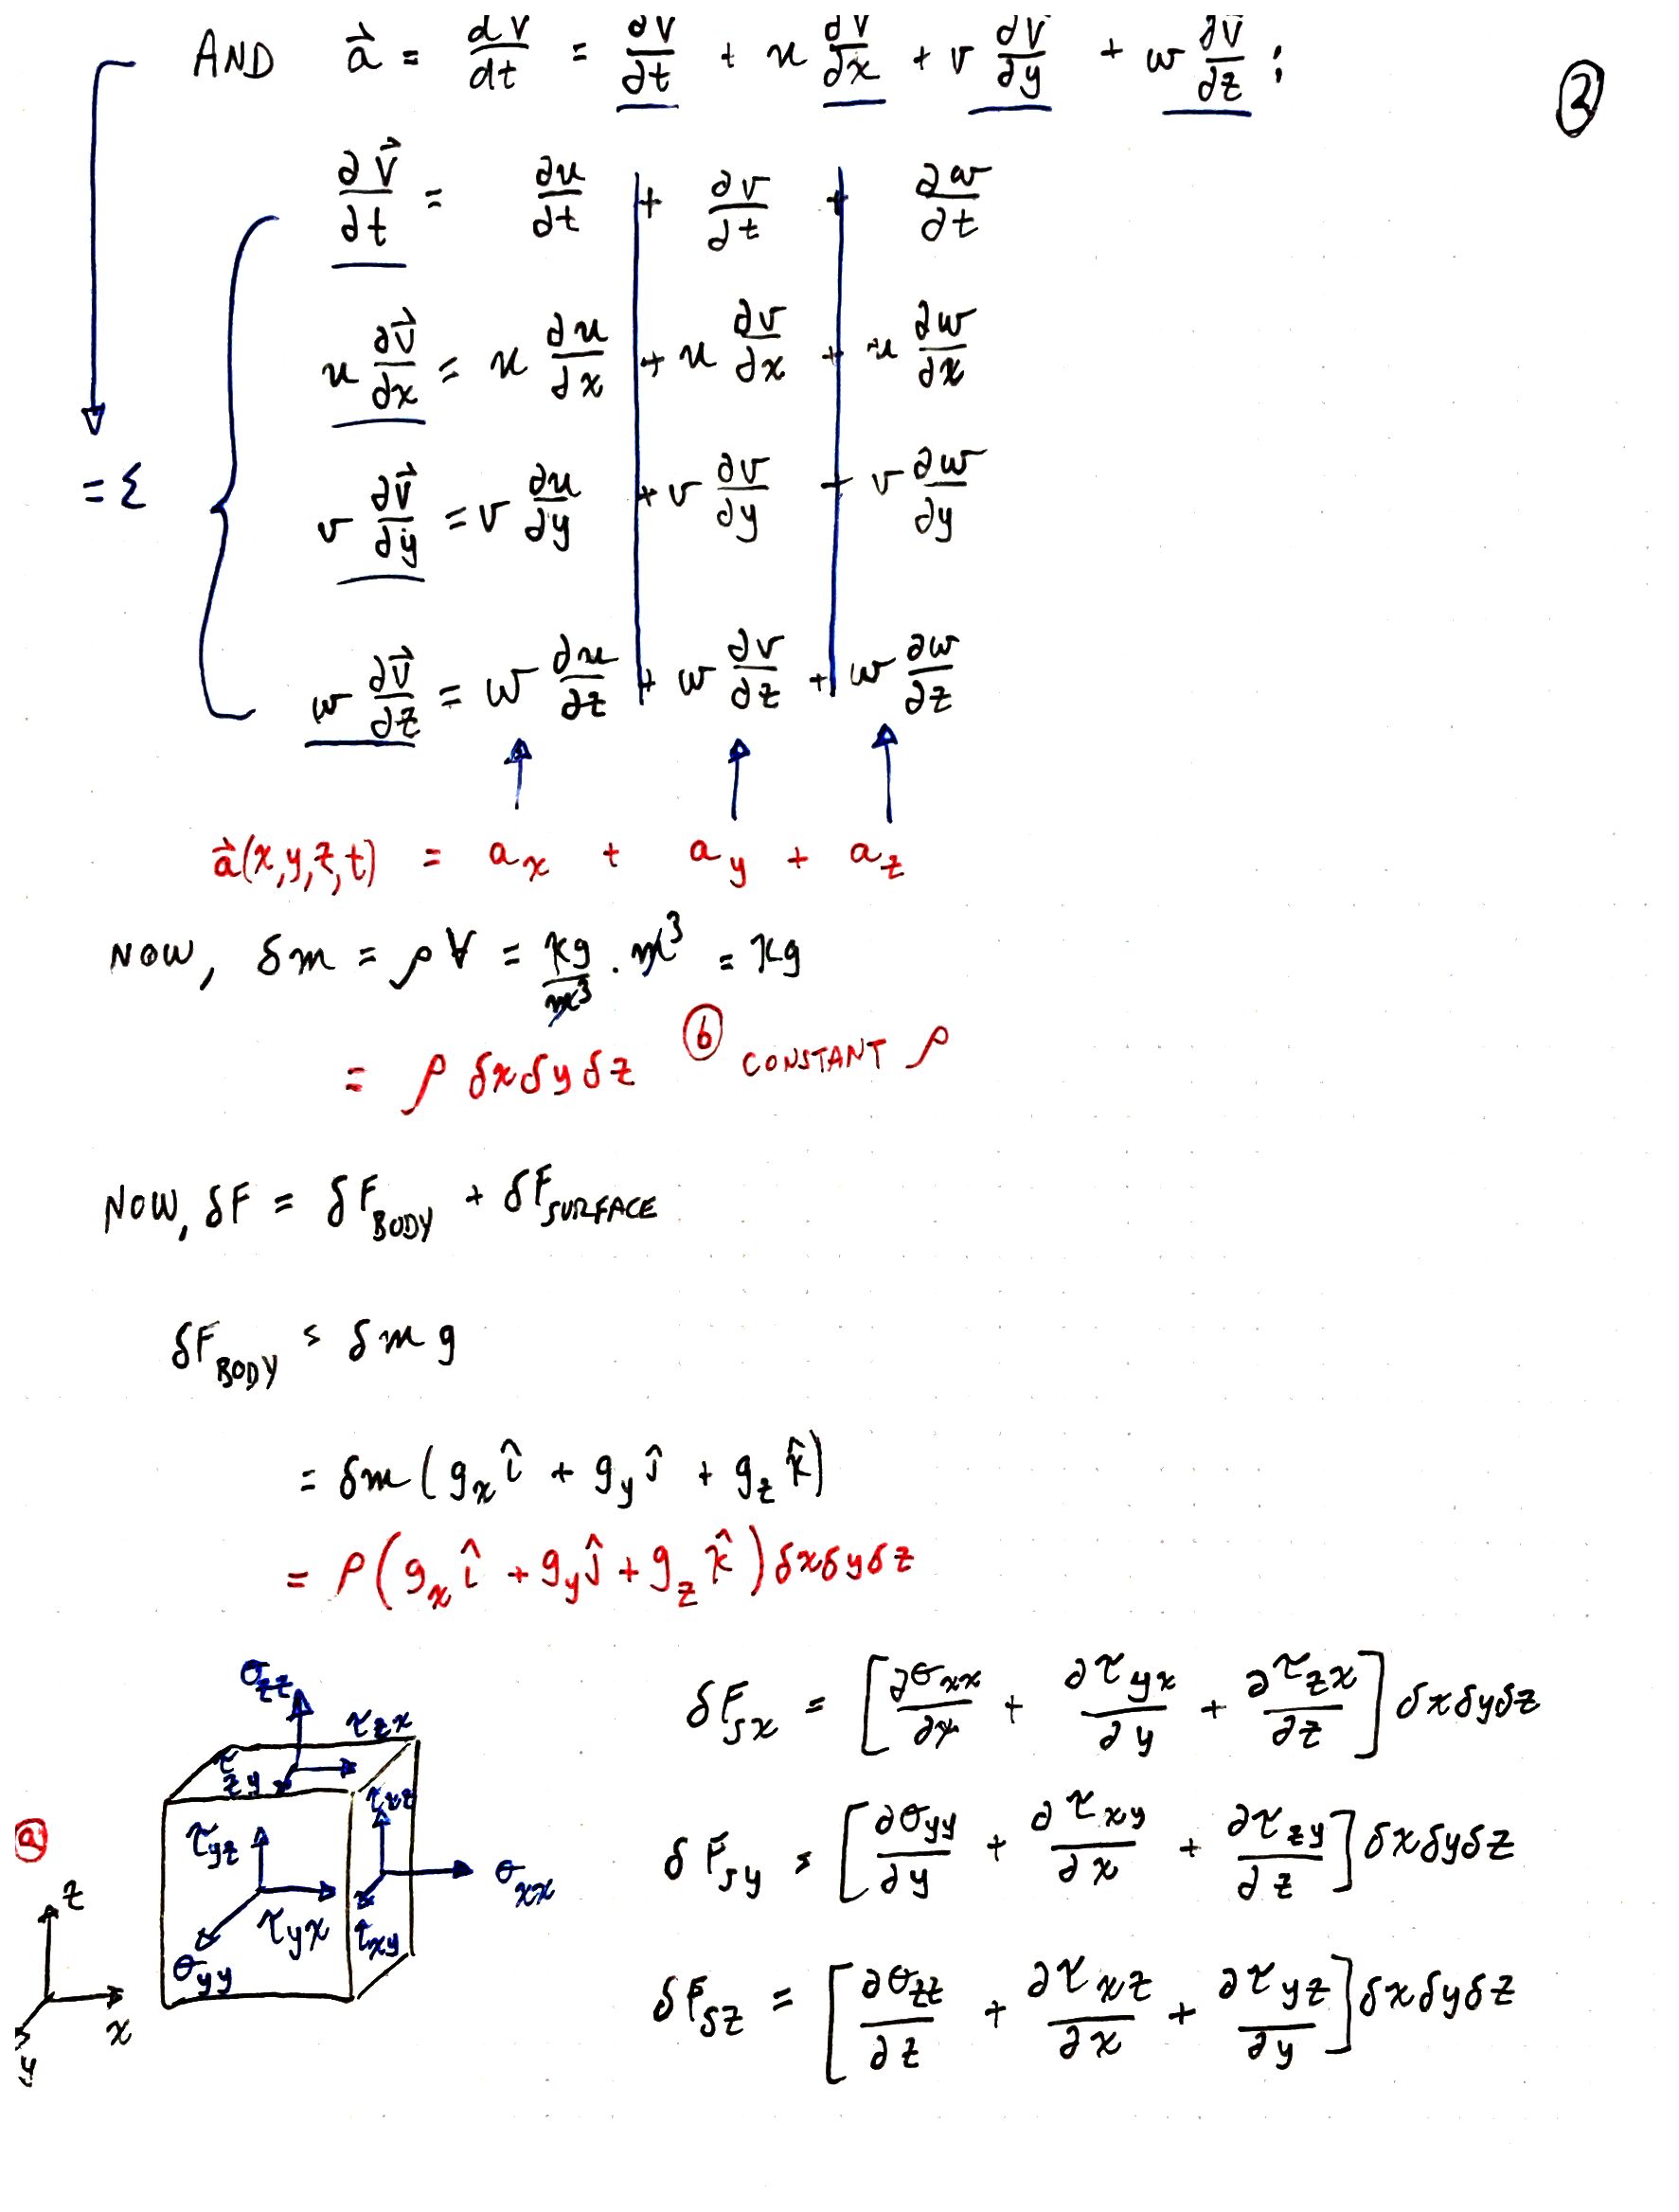 AND a⃗ = dV/dt = ∂V/∂t + u ∂V/∂x + v ∂V/∂y + w ∂V/∂z ;
②
∂V⃗/∂t = ∂u/∂t + ∂v/∂t + ∂w/∂t
u ∂V⃗/∂x = u ∂u/∂x + u ∂v/∂x + u ∂w/∂x
= Σ
v ∂V⃗/∂y = v ∂u/∂y + v ∂v/∂y + v ∂w/∂y
w ∂V⃗/∂z = w ∂u/∂z + w ∂v/∂z + w ∂w/∂z
a⃗(x,y,z,t) = a_x + a_y + a_z
NOW, δm = ρ V = kg/m³ . m³ = kg
= ρ δxδyδz ⓑ CONSTANT ρ
NOW, δF = δF_BODY + δF_SURFACE
δF_BODY = δm g
= δm (g_x î + g_y ĵ + g_z k̂)
= ρ(g_x î + g_y ĵ + g_z k̂) δxδyδz
σ_zz
τ_zx
τ_zy
τ_xz
τ_yz
ⓐ
σ_xx
τ_yx
τ_xy
σ_yy
z
x
y
δF_sx = [∂σ_xx/∂x + ∂τ_yx/∂y + ∂τ_zx/∂z] δxδyδz
δF_sy = [∂σ_yy/∂y + ∂τ_xy/∂x + ∂τ_zy/∂z] δxδyδz
δF_sz = [∂σ_zz/∂z + ∂τ_xz/∂x + ∂τ_yz/∂y] δxδyδz